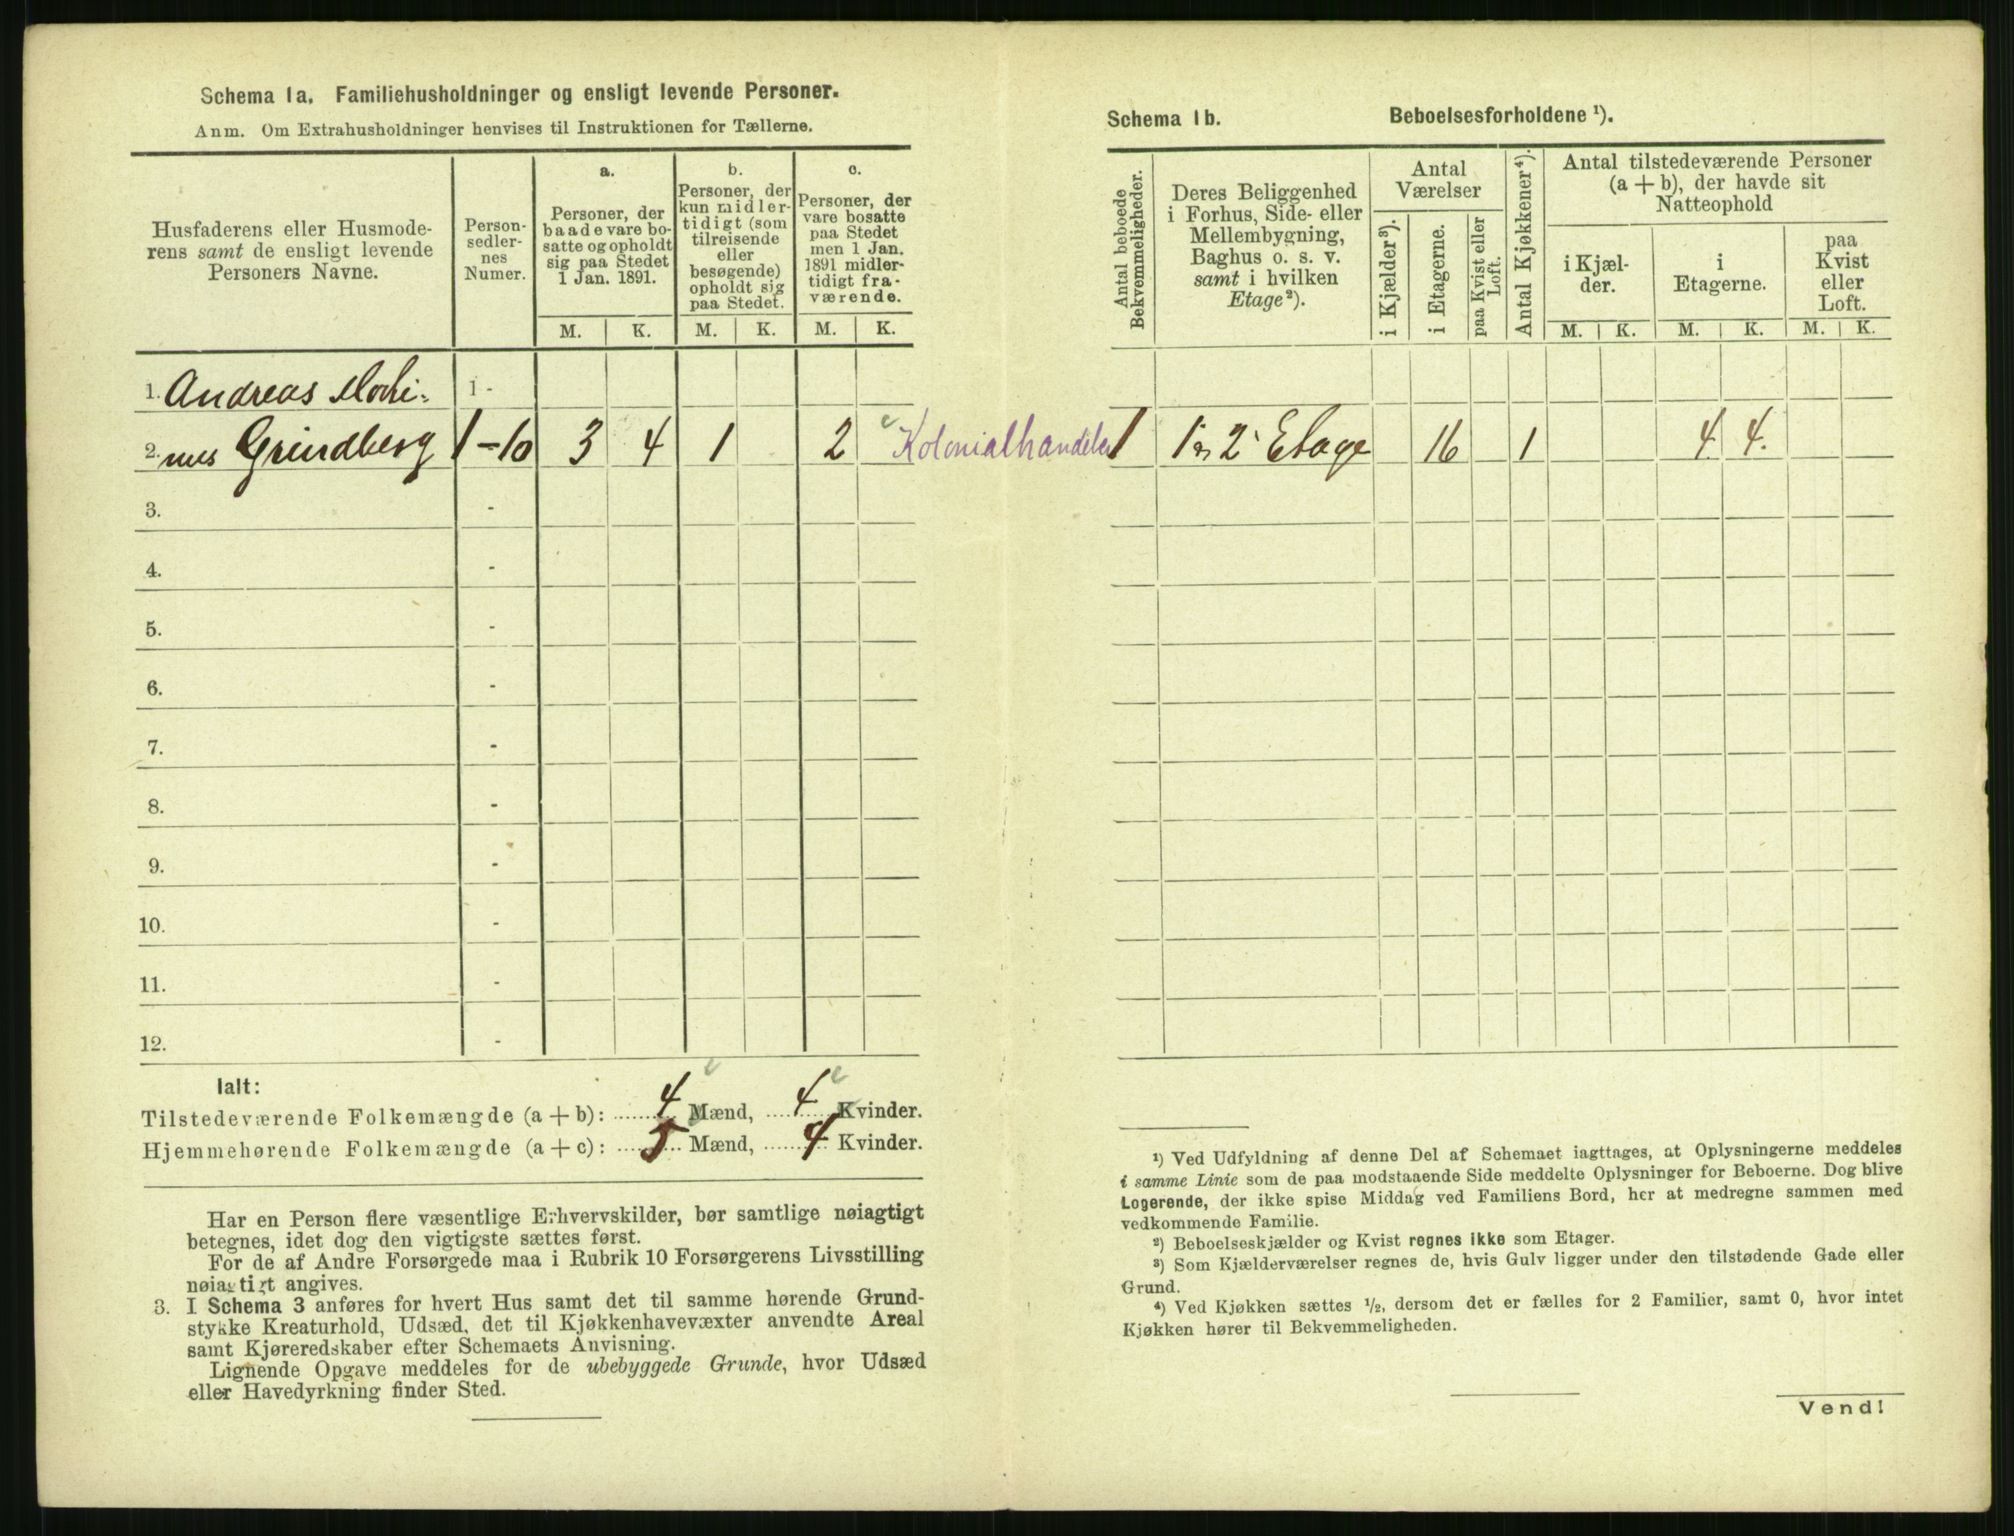 Schema 1a. Familiehusholdninger og ensligt levende Personer.
Anm. Om Extrahusholdninger henvises til Instruktionen for Tællerne.
Husfaderens eller Husmode-
rens samt de ensligt levende
Personers Navne.
Person-
sedler-
nes
Numer.
a.
Personer, der
baade vare bo-
satte og opholdt
sig paa Stedet
1 Jan. 1891.
b.
Personer, der
kun midler-
tidigt (som
tilreisende
eller
besøgende)
opholdt sig
paa Stedet.
c.
Personer, der
vare bosatte
paa Stedet
men 1 Jan.
1891 midler-
tidigt fra-
værende.
M. K. M. K. M. K.
1. Andreas Marti- 1 -
2. nus Grindberg 1-10 3 4 1 2 Kolonialhandeler
3. -
4. -
5. -
6. -
7. -
8. -
9. -
10. -
11. -
12. -
Ialt:
Tilstedeværende Folkemængde (a + b): 4 Mænd, 4 Kvinder.
Hjemmehørende Folkemængde (a + c): 5 Mænd, 4 Kvinder.
Har en Person flere væsentlige Erhvervskilder, bør samtlige nøiagtigt
betegnes, idet dog den vigtigste sættes først.
For de af Andre Forsørgede maa i Rubrik 10 Forsørgerens Livsstilling
nøiagtigt angives.
3. I Schema 3 anføres for hvert Hus samt det til samme hørende Grund-
stykke Kreaturhold, Udsæd, det til Kjøkkenhavevæxter anvendte Areal
samt Kjøreredskaber efter Schemaets Anvisning.
Lignende Opgave meddeles for de ubebyggede Grunde, hvor Udsæd
eller Havedyrkning finder Sted.
Schema 1b. Beboelsesforholdene ¹).
Antal beboede
Bekvemmeligheder.
Deres Beliggenhed
i Forhus, Side- eller
Mellembygning,
Baghus o. s. v.
samt i hvilken
Etage²).
Antal
Værelser
i Kjælder³).
i Etagerne.
paa Kvist eller
Loft.
Antal Kjøkkener⁴).
Antal tilstedeværende Personer
(a + b), der havde sit
Natteophold
i Kjæl-
der.
i
Etagerne.
paa
Kvist
eller
Loft.
M. K. M. K. M. K.
1 1 2 Etage 16 1 4 4.
¹) Ved Udfyldning af denne Del af Schemaet iagttages, at Oplysningerne meddeles
i samme Linie som de paa modstaaende Side meddelte Oplysninger for Beboerne. Dog blive
Logerende, der ikke spise Middag ved Familiens Bord, her at medregne sammen med
vedkommende Familie.
²) Beboelseskjælder og Kvist regnes ikke som Etager.
³) Som Kjælderværelser regnes de, hvis Gulv ligger under den tilstødende Gade eller
Grund.
⁴) Ved Kjøkken sættes ½, dersom det er fælles for 2 Familier, samt 0, hvor intet
Kjøkken hører til Bekvemmeligheden.
Vend!